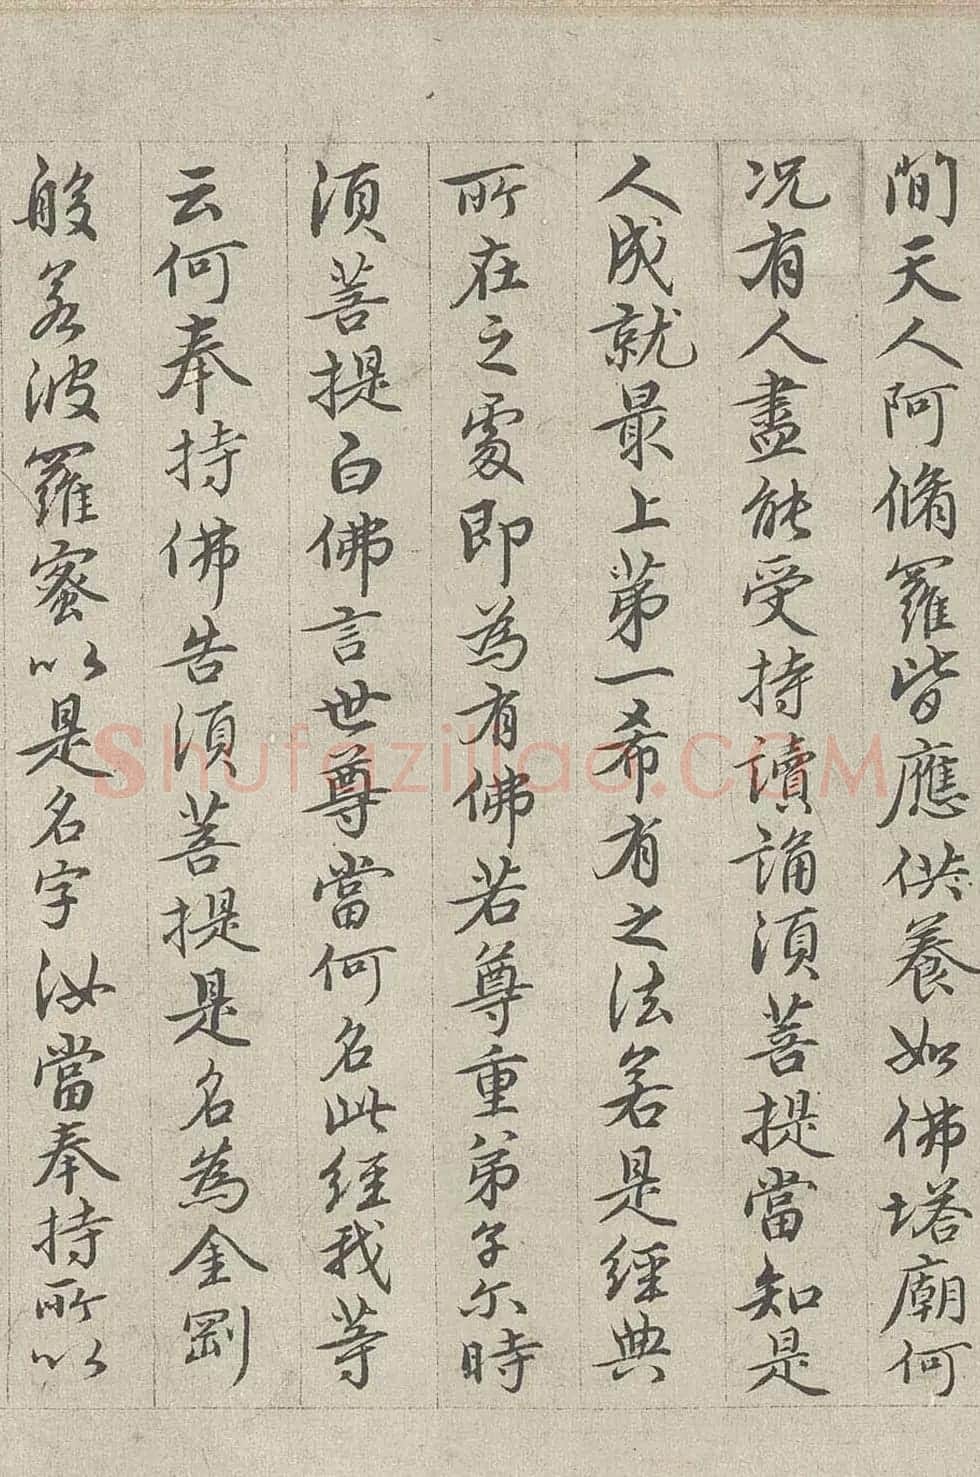 間天人阿脩羅皆應供養如佛塔廟何
况有人盡能受持讀誦須菩提當知是
人成就最上苐一希有之法若是經典
所在之處即為有佛若尊重弟子尓時
須菩提白佛言世尊當何名此經我等
云何奉持佛告須菩提是名為金剛
般若波羅蜜以是名字汝當奉持所以
Shufaziliao.COM